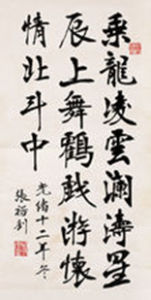 乘龍凌雲澜濤星
辰上舞鶴戲游懷
情北斗中
光緒十二年冬
張裕釗